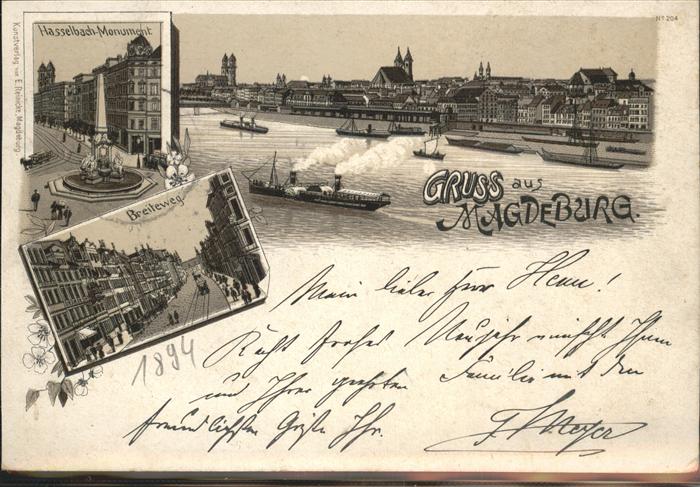 Nº 204
Kunstverlag von E. Reinicke, Magdeburg.
Hasselbach-Monument
Breiteweg.
GRUSS aus
MAGDEBURG.
Mein lieber Herr Henn!
Recht frohes Neujahr wünscht Ihnen
und Ihrer geehrten Familie mit den
freundlichsten Grüßen Ihr.
F. Meyer
1894